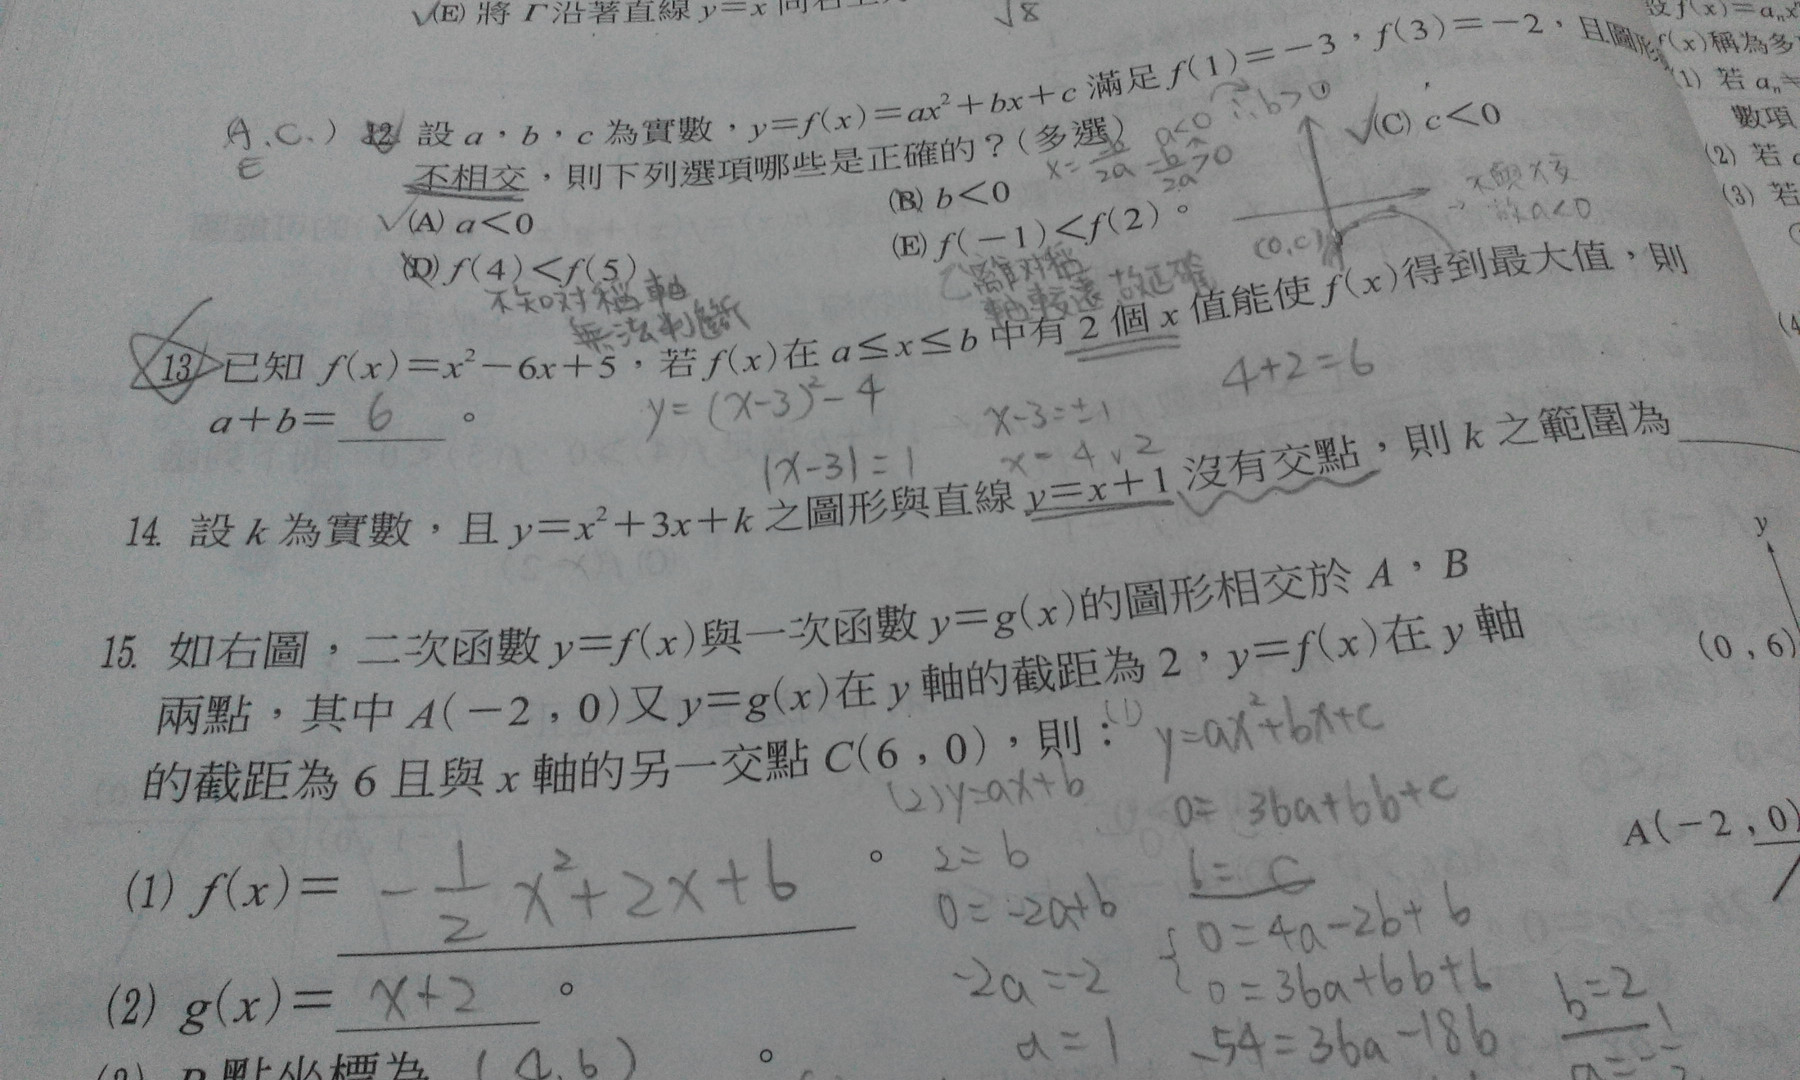 √(E) 將 Γ 沿著直線 y=x 向右上
√8
(A.C.) 12. 設 a，b，c 為實數，y=f(x)=ax²+bx+c 滿足 f(1)=−3，f(3)=−2，且圖形
E
不相交，則下列選項哪些是正確的？(多選)
a<0 ∴b>0
x= -b/2a -b/2a>0
√(A) a<0
(B) b<0
√(C) c<0
(D) f(4)<f(5)
(E) f(−1)<f(2)。
(0,c)
不與x交
→ 故a<0
不知對稱軸
無法判斷
離對稱
軸較遠 故正確
13. 已知 f(x)=x²−6x+5，若 f(x)在 a≤x≤b 中有 2 個 x 值能使 f(x)得到最大值，則
a+b= 6 。
y=(x-3)²-4
|x-3|=1
x-3=±1
x=4,2
4+2=6
14. 設 k 為實數，且 y=x²+3x+k 之圖形與直線 y=x+1 沒有交點，則 k 之範圍為
15. 如右圖，二次函數 y=f(x)與一次函數 y=g(x)的圖形相交於 A，B
兩點，其中 A(−2，0)又 y=g(x)在 y 軸的截距為 2，y=f(x)在 y 軸
的截距為 6 且與 x 軸的另一交點 C(6，0)，則：
(1) y=ax²+bx+c
0=36a+6b+c
6=c
0=4a-2b+6
0=36a+6b+6
-54=36a-18b
b=2
(2) y=ax+b
2=b
0=-2a+b
-2a=-2
a=1
(1) f(x)= -1/2 x²+2x+6 。
(2) g(x)= x+2 。
點坐標為 (4,6) 。
設 f(x)=aₙx
f(x)稱為多
(1) 若 aₙ≠
數項
(2) 若
(3) 若
(4
y
(0，6)
A(−2，0)